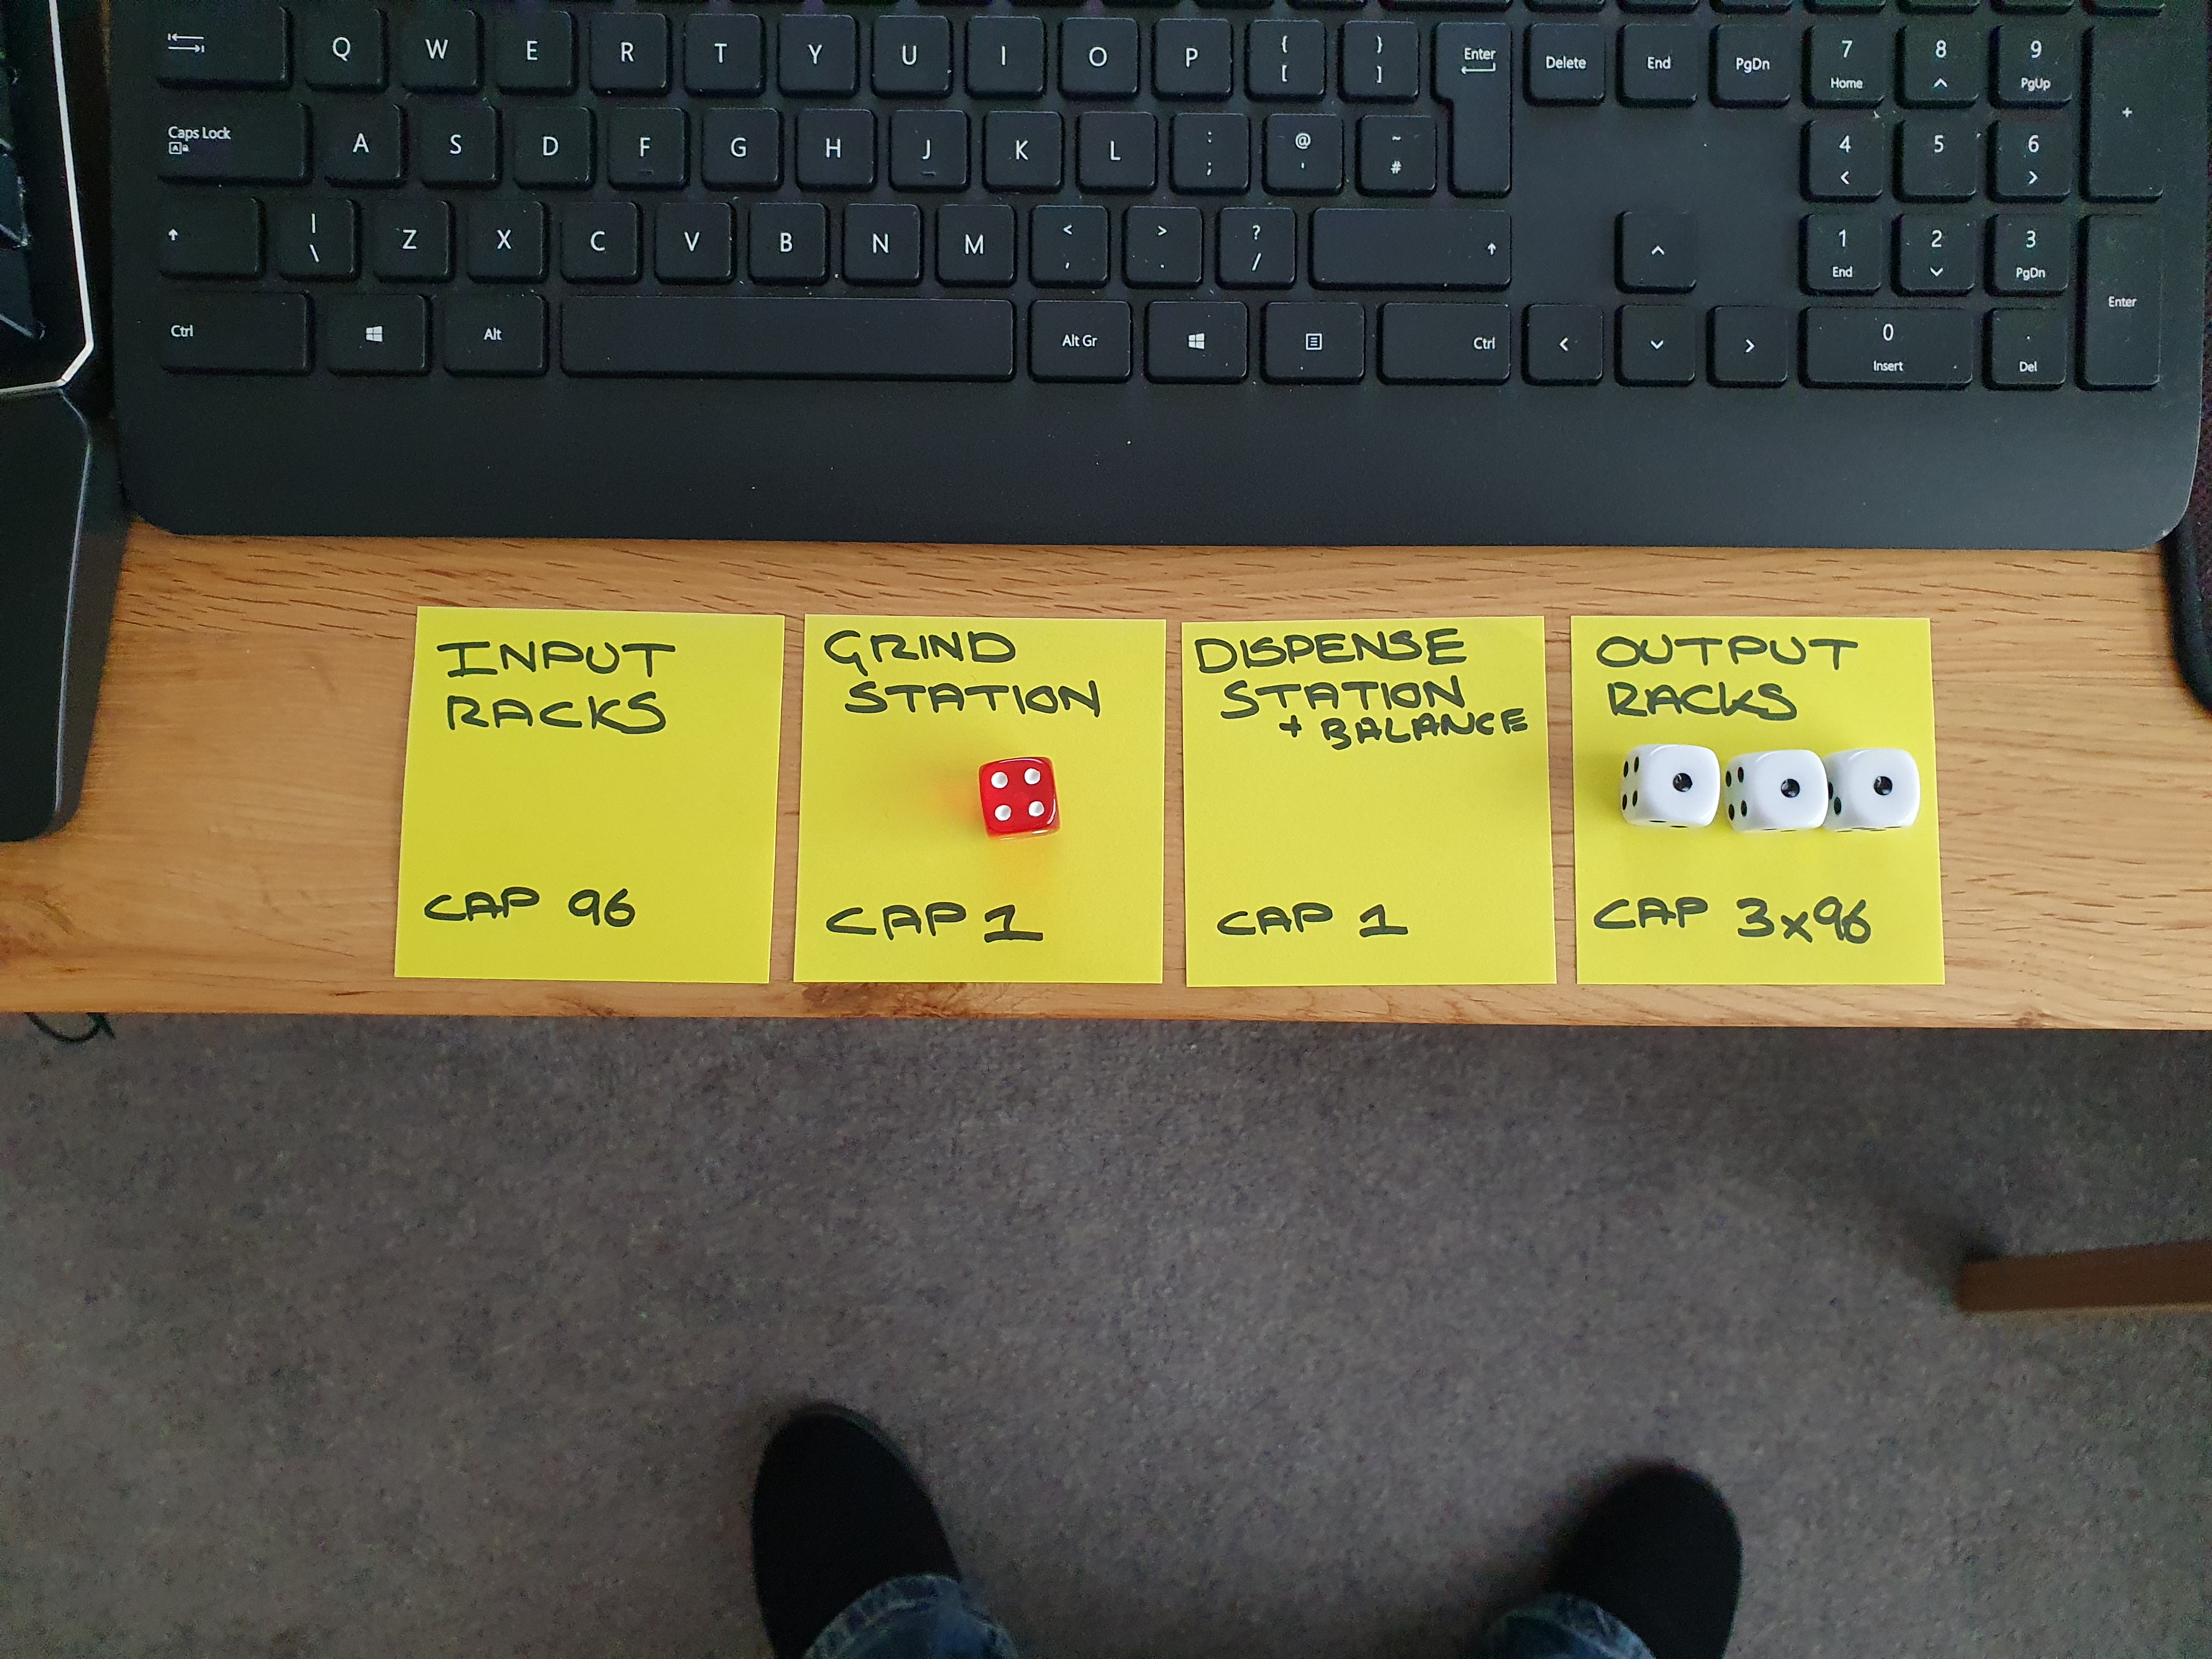 Q W E R T Y U I O P { [ } ] Enter Delete End PgDn 7 Home 8 9 PgUp +
Caps Lock A S D F G H J K L : ; @ ' ~ # 4 < 5 6 >
| \ Z X C V B N M < , > . ? / 1 End 2 3 PgDn
Ctrl Alt Alt Gr Ctrl 0 Insert . Del Enter
INPUT
RACKS
CAP 96
GRIND
STATION
CAP 1
DISPENSE
STATION
+ BALANCE
CAP 1
OUTPUT
RACKS
CAP 3x96